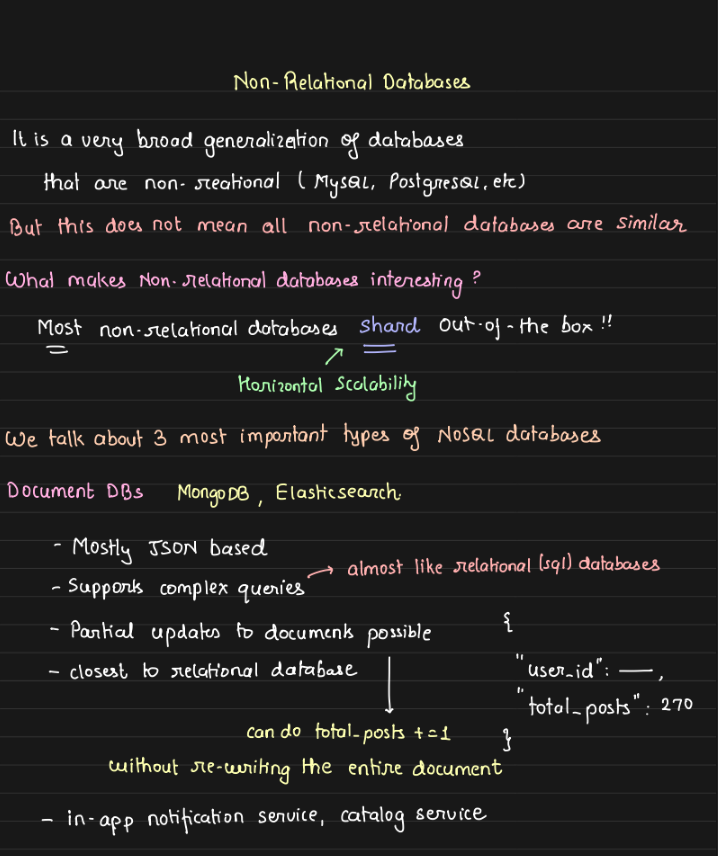 Non-Relational Databases
It is a very broad generalization of databases
that are non-reational (MySQL, PostgresQL, etc)
But this does not mean all non-relational databases are similar
What makes Non-relational databases interesting?
Most non-relational databases shard out-of-the box!!
Horizontal Scalability
We talk about 3 most important types of NoSQL databases
Document DBs MongoDB, Elasticsearch
- Mostly JSON based
- Supports complex queries → almost like relational (sql) databases
- Partial updates to documents possible
- closest to relational database
{
"user_id": ___,
"total_posts": 270
}
can do total_posts += 1
without re-writing the entire document
- in-app notification service, catalog service